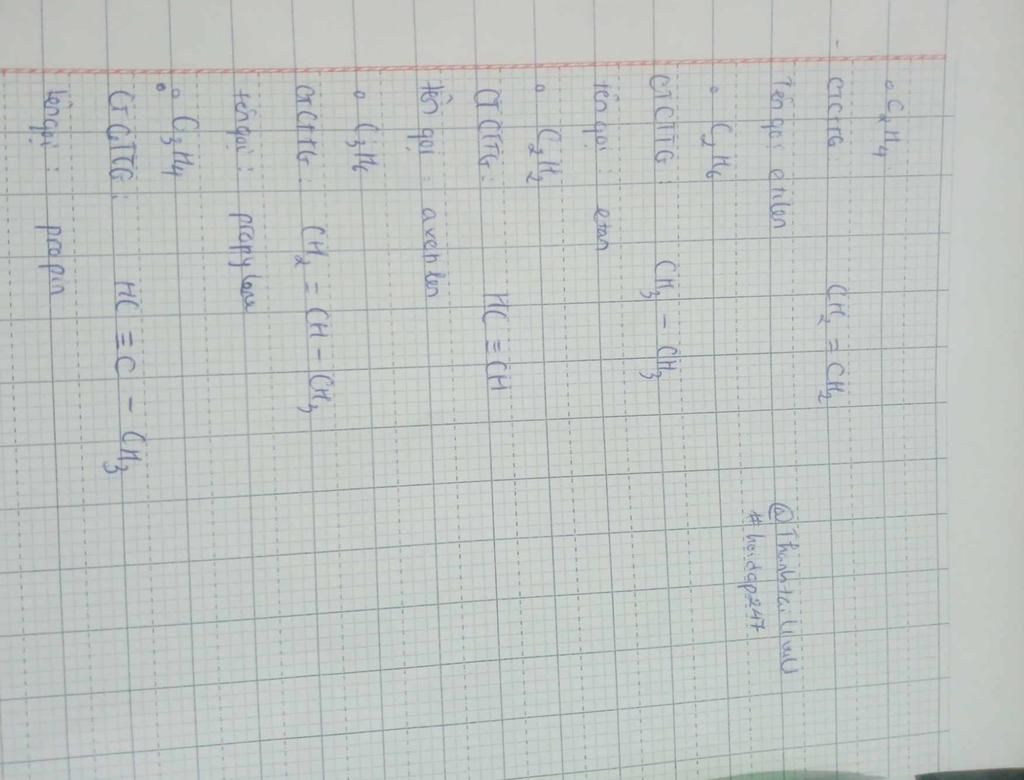 C₂H₄
CTCTTG CH₂ = CH₂
Tên gọi etilen
C₂H₆
CTCTTG: CH₃ - CH₃
tên gọi: etan
C₂H₂
CTCTTG: HC ≡ CH
tên gọi: axetylen
C₃H₆
CTCTTG: CH₂ = CH - CH₃
tên gọi: propylen
C₃H₄
CTCTTG: HC ≡ C - CH₃
tên gọi: propin
#hoidap247